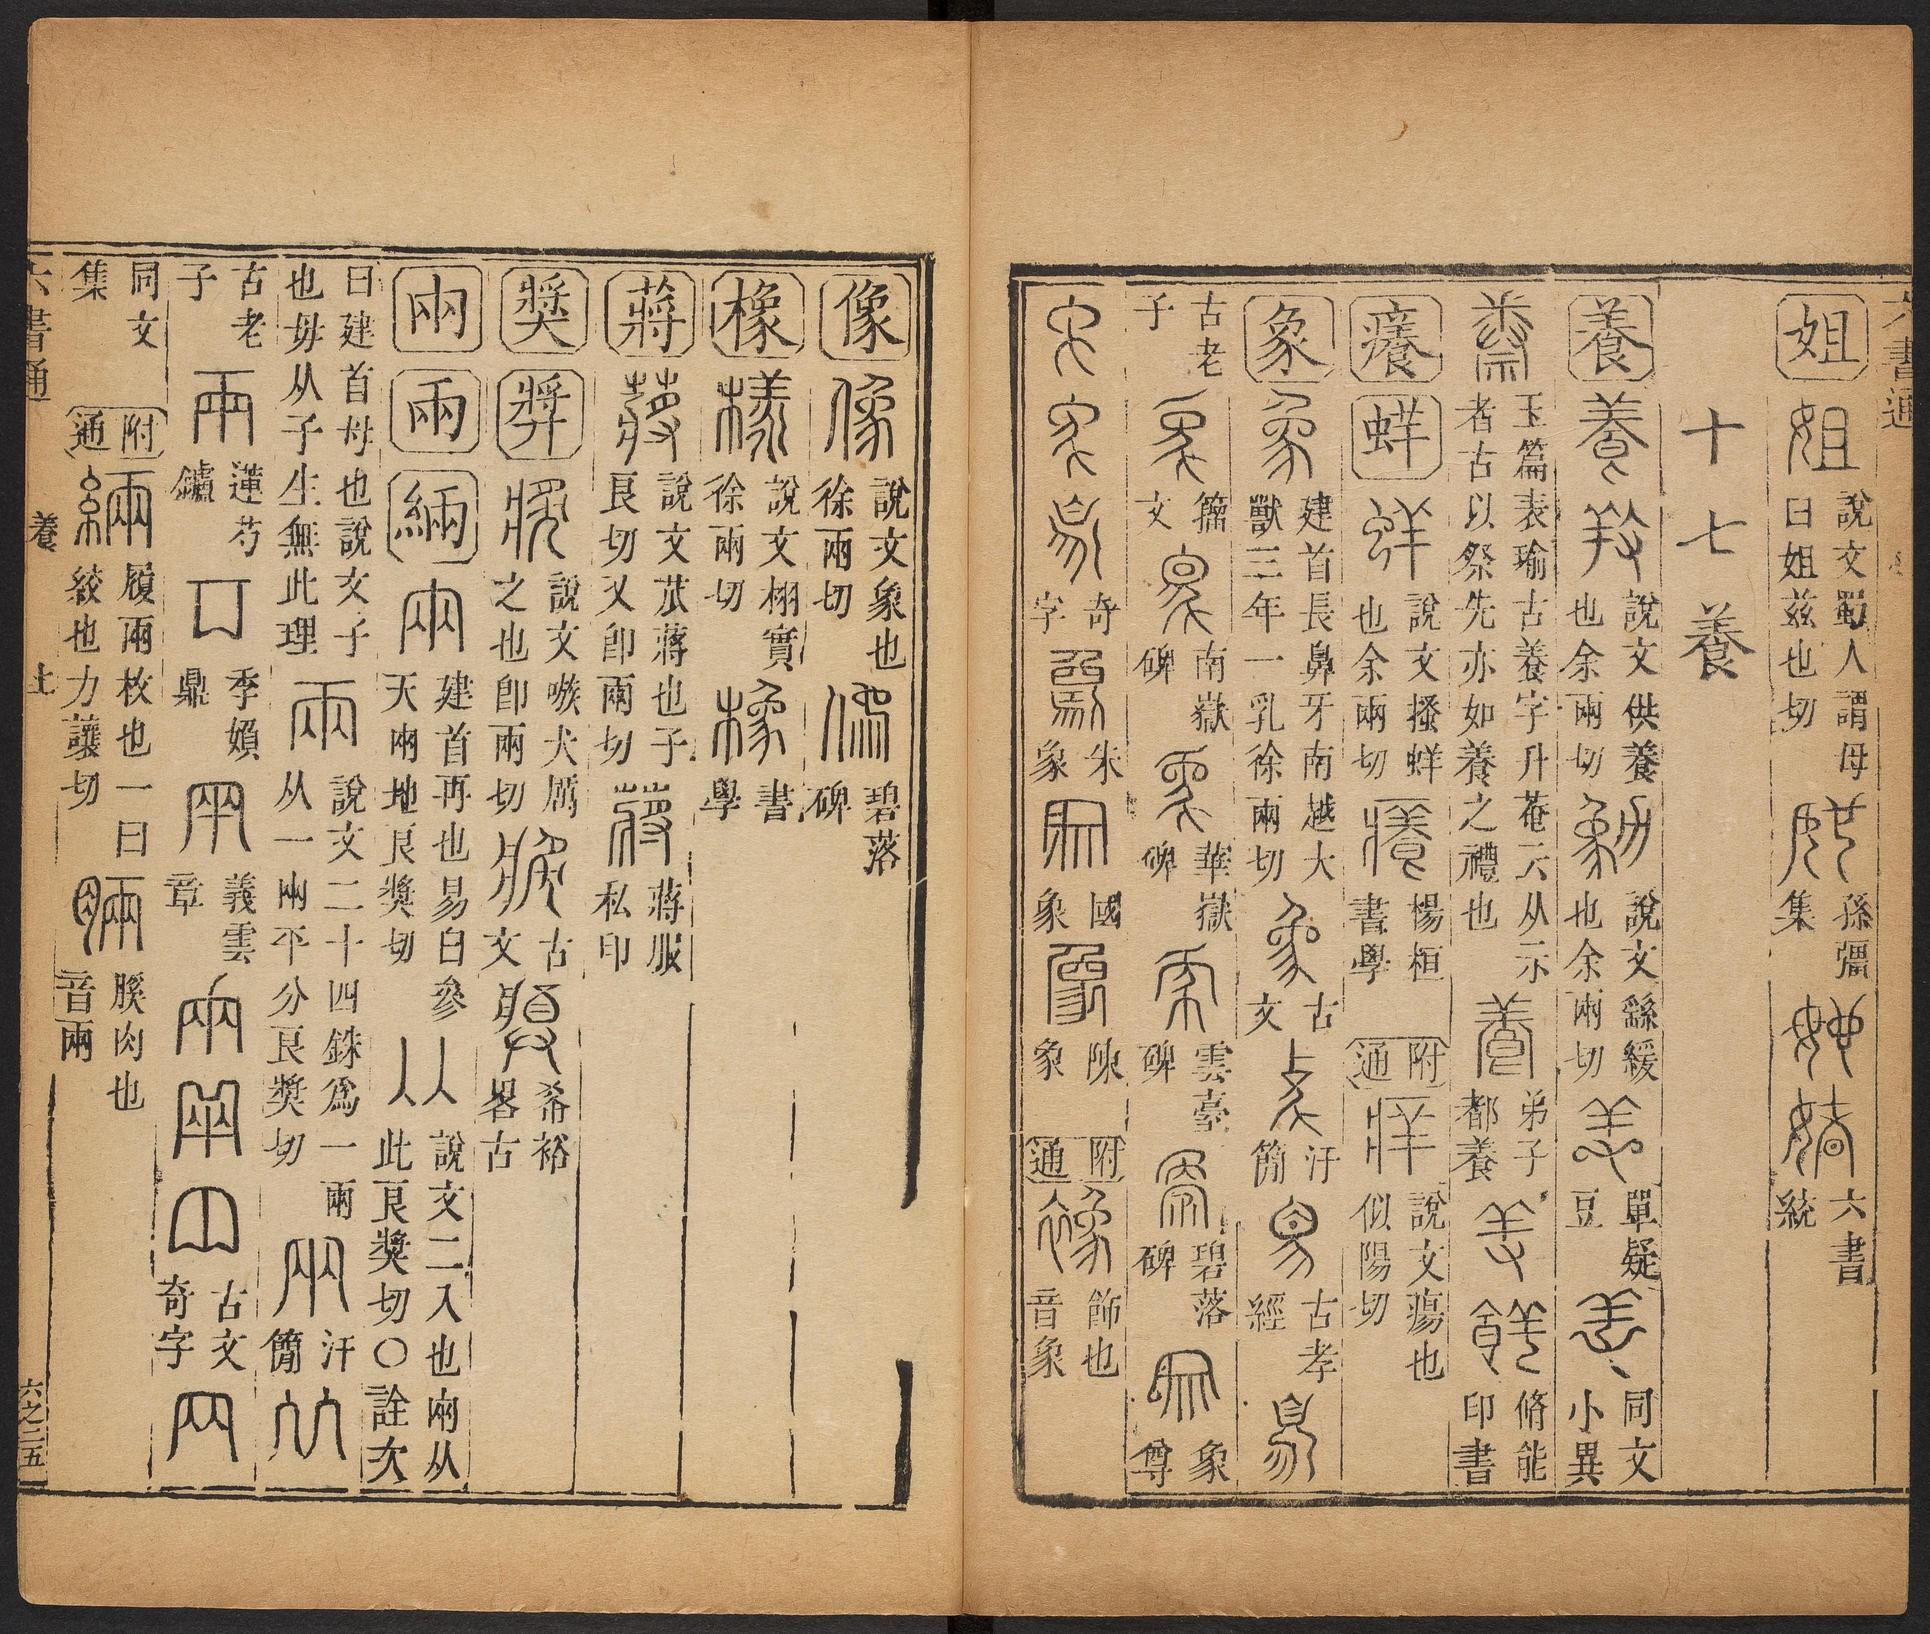 六書通
姐 姐 說文蜀人謂母曰姐兹也切 孫彊集 六書統
十七養
養 養 說文供養也余兩切 說文繇緩也余兩切 單疑豆 同文小異
玉篇表瑜古養字升菴云从示者古以祭先亦如養之禮也 弟子都養 脩能印書
癢 蛘 蛘 說文搔蛘也余兩切 楊桓書學 附通 說文瘍也似陽切
象 象 建首長鼻牙南越大獸三年一乳徐兩切 古文 汗簡 古孝經
古老子 籀文 南嶽碑 華嶽碑 雲臺碑 碧落碑 象尊
奇字 朱象 國象 陳象 附通 飾也音象
像 像 說文象也徐兩切 碧落碑
橡 樣 說文栩實徐兩切 書學
蔣 蔣 說文苽蔣也子良切又卽兩切 蔣服私印
獎 弉 說文嗾犬厲之也卽兩切 古文 希裕畧古
㒳 兩 緉 㒳 建首再也易曰參天㒳地良獎切 說文二入也㒳从此良獎切〇詮次
曰建首母也說文子也毋从子生無此理 兩 說文二十四銖爲一兩从一㒳平分良獎切 汗簡
古老子 蓮芍鑪 季娟鼎 義雲章 古文奇字
同文集 附通 緉 履兩枚也一曰絞也力讓切 脼 膎肉也音兩
六書通 養 上 六之二五